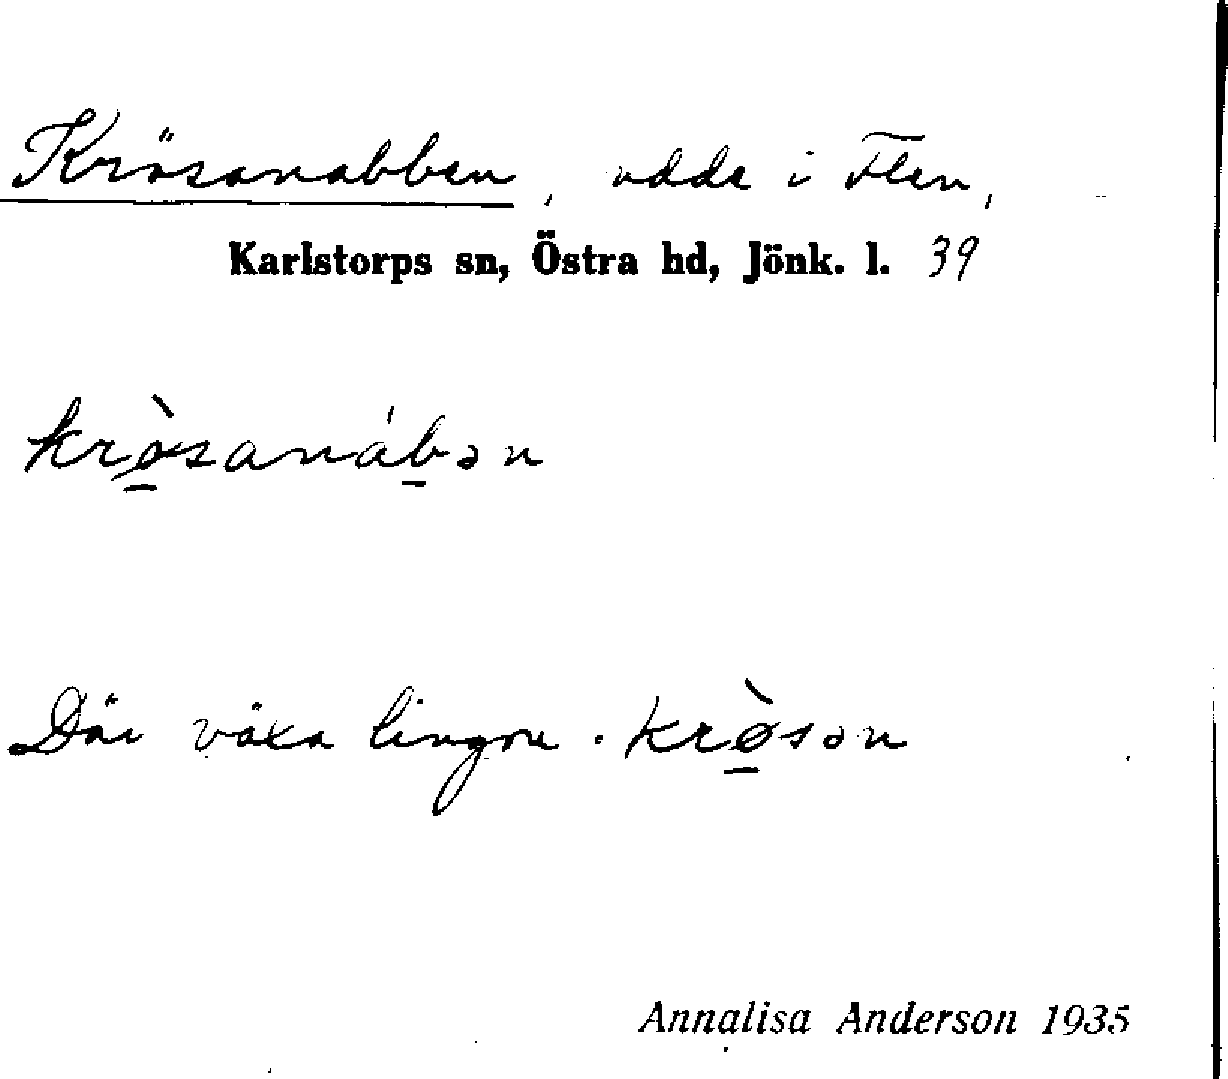 Krösanabben, udde i Flen,
Karlstorps sn, Östra hd, Jönk. l. 39
krø̱̀sanáḇən
Där växa lingon. krø̱̀sən
Annalisa Anderson 1935